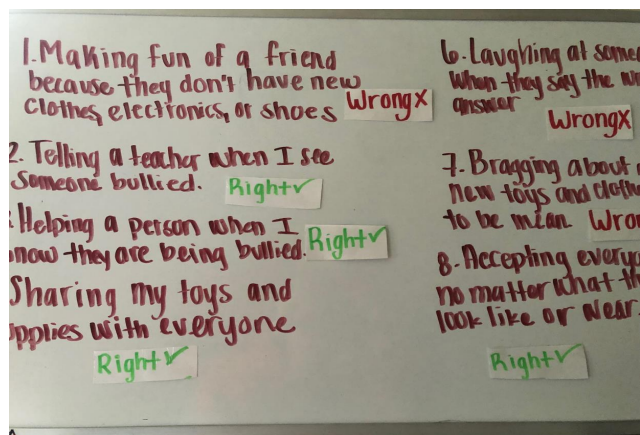 1. Making fun of a friend
because they don't have new
clothes, electronics, or shoes WrongX
2. Telling a teacher when I see
someone bullied. Right✓
Helping a person when I
they are being bullied. Right✓
Sharing my toys and
with everyone
Right✓
6. Laughing at
When they say the
answer
WrongX
7. Bragging about
new toys and
to be mean.
8. Accepting
no matter what
look like or wear.
Right✓